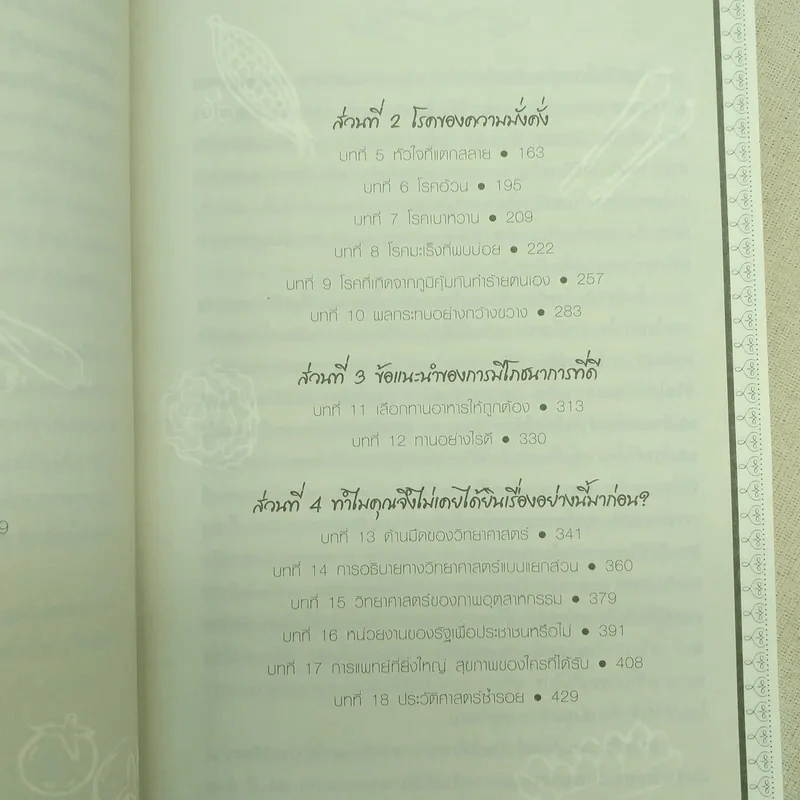 ส่วนที่ 2 โรคของความมั่งคั่ง
บทที่ 5 หัวใจที่แตกสลาย ● 163
บทที่ 6 โรคอ้วน ● 195
บทที่ 7 โรคเบาหวาน ● 209
บทที่ 8 โรคมะเร็งที่พบบ่อย ● 222
บทที่ 9 โรคที่เกิดจากภูมิคุ้มกันทำร้ายตนเอง ● 257
บทที่ 10 ผลกระทบอย่างกว้างขวาง ● 283
ส่วนที่ 3 ข้อแนะนำของการมีโภชนาการที่ดี
บทที่ 11 เลือกทานอาหารให้ถูกต้อง ● 313
บทที่ 12 ทานอย่างไรดี ● 330
ส่วนที่ 4 ทำไมคุณจึงไม่เคยได้ยินเรื่องอย่างนี้มาก่อน?
บทที่ 13 ด้านมืดของวิทยาศาสตร์ ● 341
บทที่ 14 การอธิบายทางวิทยาศาสตร์แบบแยกส่วน ● 360
บทที่ 15 วิทยาศาสตร์ของภาพอุตสาหกรรม ● 379
บทที่ 16 หน่วยงานของรัฐเพื่อประชาชนหรือไม่ ● 391
บทที่ 17 การแพทย์ที่ยิ่งใหญ่ สุขภาพของใครที่ได้รับ ● 408
บทที่ 18 ประวัติศาสตร์ซ้ำรอย ● 429
9